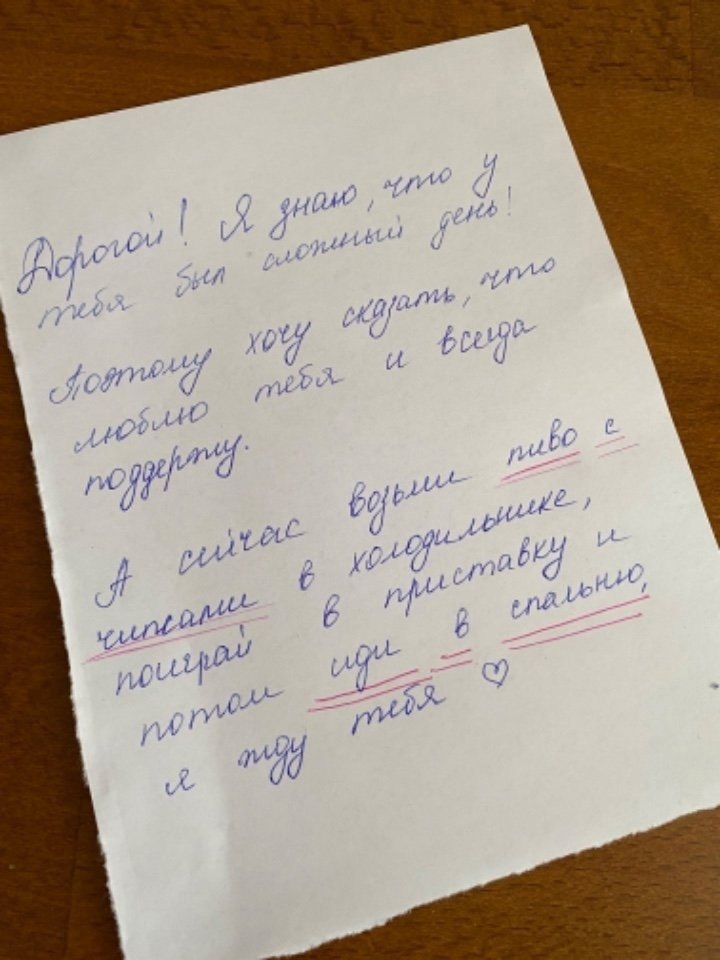 Дорогой! Я знаю, что у
тебя был сложный день!
Поэтому хочу сказать, что
люблю тебя и всегда
поддержу.
А сейчас возьми пиво с
чипсами в холодильнике,
поиграй в приставку и
потом иди в спальню,
я жду тебя ♡